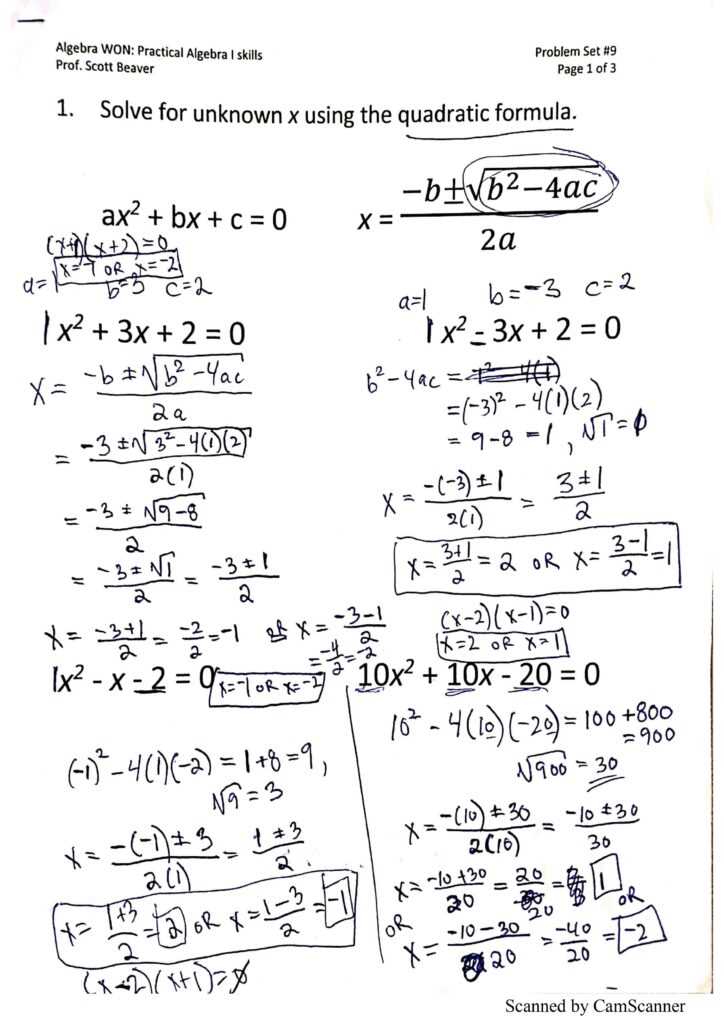 Algebra WON: Practical Algebra I skills
Prof. Scott Beaver
Problem Set #9
Page 1 of 3
1. Solve for unknown x using the quadratic formula.
ax² + bx + c = 0
x = (−b±√(b²−4ac))/(2a)
(x+1)(x+2)=0
x=-1 OR x=-2
a=1 b=3 c=2
1x² + 3x + 2 = 0
x = (-b ± √(b²-4ac))/(2a)
= (-3 ± √(3²-4(1)(2)))/(2(1))
= (-3 ± √(9-8))/2
= (-3 ± √1)/2 = (-3 ± 1)/2
x = (-3+1)/2 = -2/2 = -1 OR x = (-3-1)/2
= -4/2 = -2
x=-1 OR x=-2
a=1 b=-3 c=2
1x² - 3x + 2 = 0
b²-4ac =
=(-3)² - 4(1)(2)
= 9-8 = 1, √1 =
x = (-(-3) ± 1)/(2(1)) = (3 ± 1)/2
x = (3+1)/2 = 2 OR x = (3-1)/2 = 1
(x-2)(x-1)=0
x=2 OR x=1
1x² - x - 2 = 0
(-1)² - 4(1)(-2) = 1+8 = 9,
√9 = 3
x = (-(-1) ± 3)/(2(1)) = (1 ± 3)/2
x = (1+3)/2 = 2 OR x = (1-3)/2 = -1
(x-2)(x+1)=0
10x² + 10x - 20 = 0
10² - 4(10)(-20) = 100 +800
= 900
√900 = 30
x = (-(10) ± 30)/(2(10)) = (-10 ± 30)/30
x = (-10+30)/20 = 20/20 = 1
OR
OR
x = (-10-30)/20 = -40/20 = -2
Scanned by CamScanner